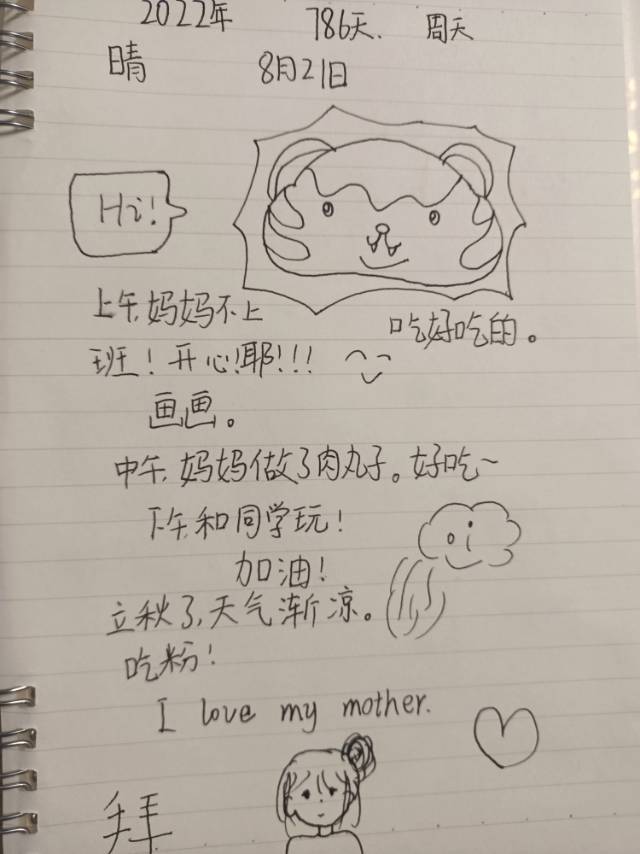 2022年 786天. 周天
晴 8月21日
Hi!
上午,妈妈不上
班！开心!耶!!!
吃好吃的。
画画。
中午,妈妈做了肉丸子。好吃~
下午,和同学玩！
加油！
立秋了,天气渐凉。
吃粉！
I love my mother.